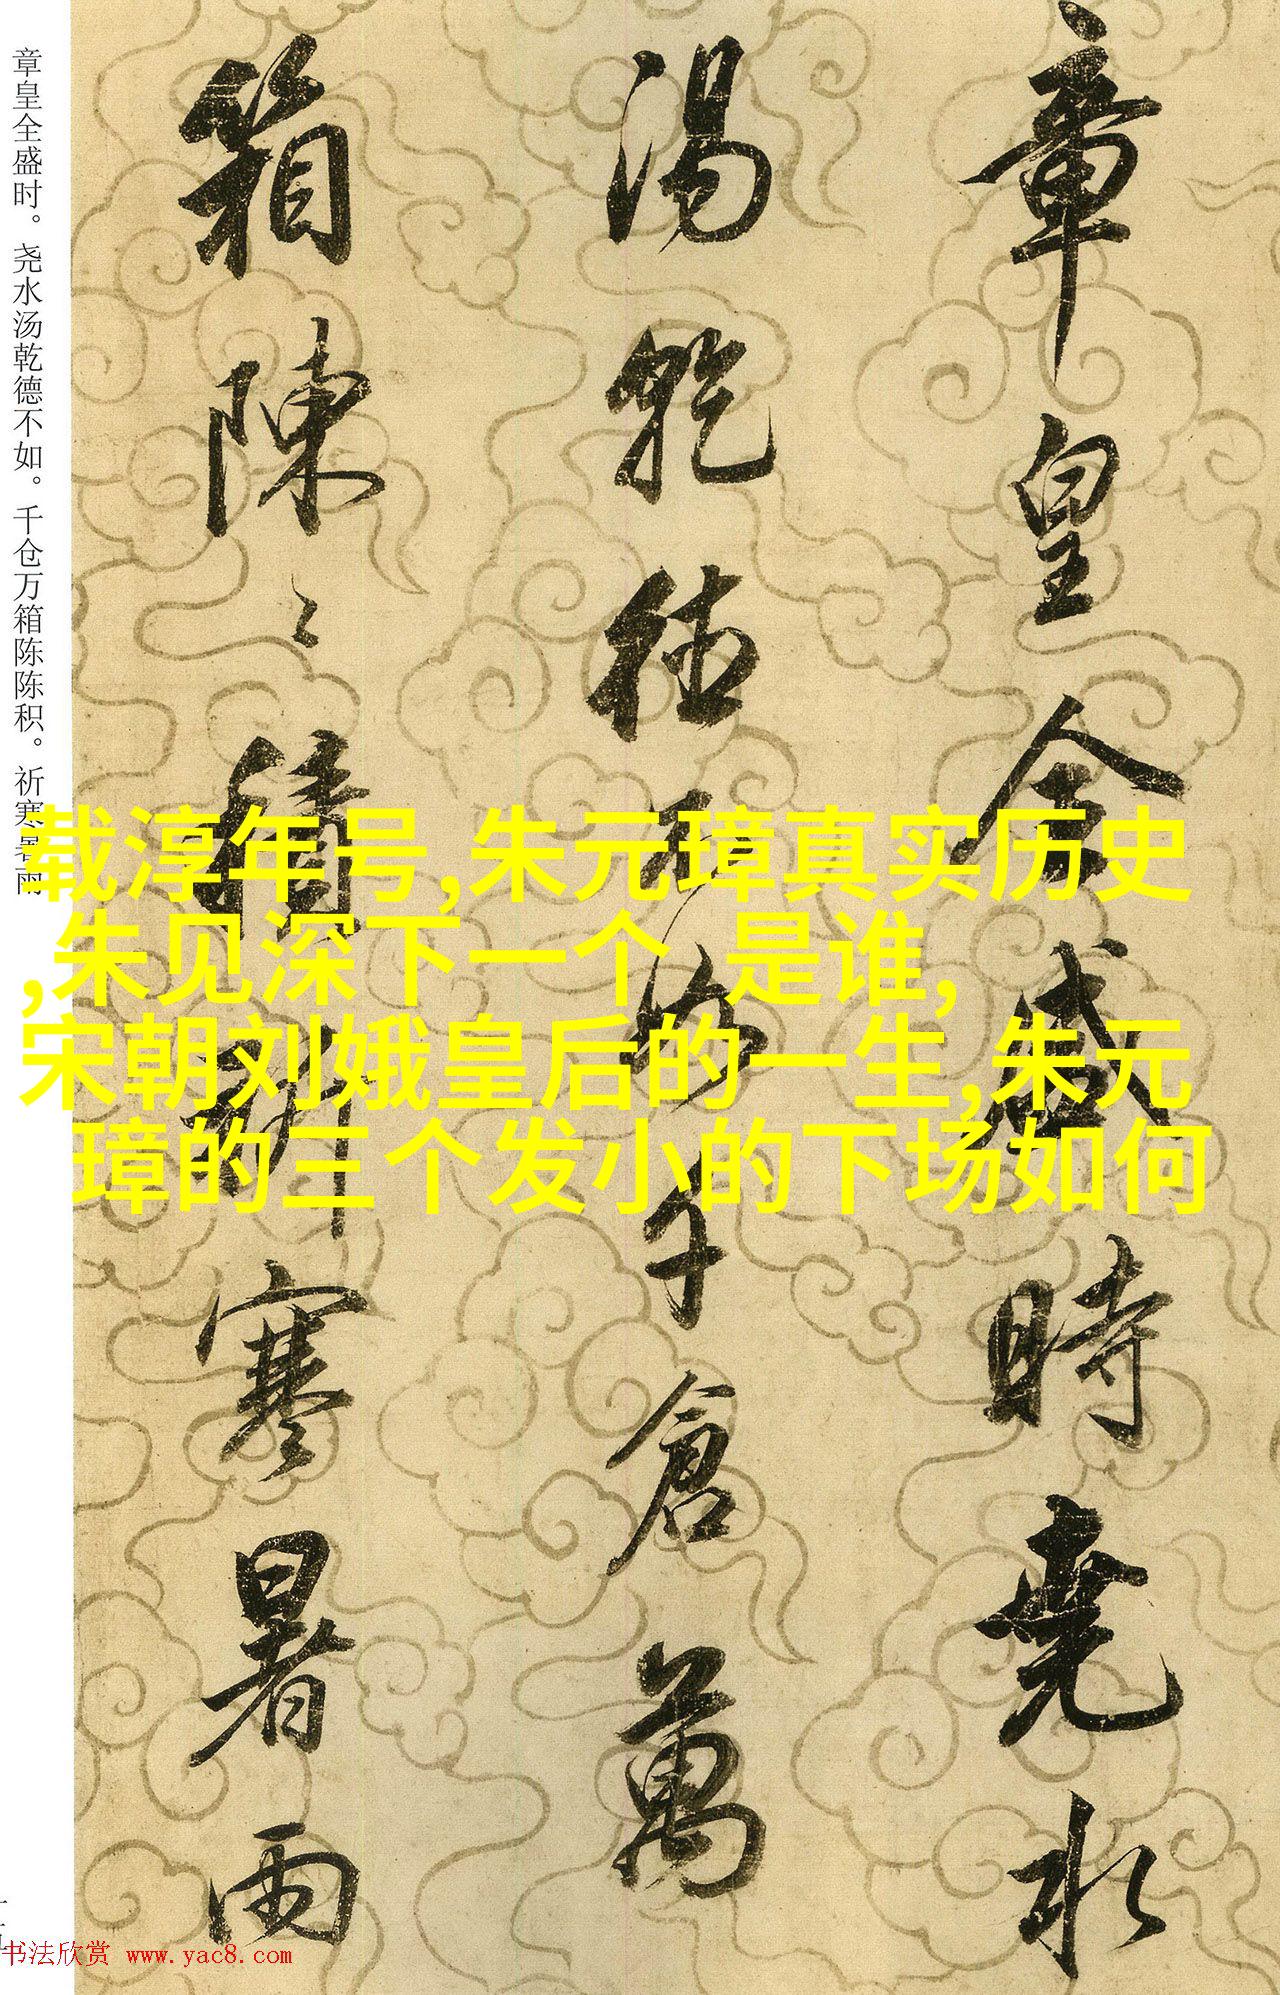 章皇全盛時堯水
湯乾德不如千倉萬
箱陳〻積祈寒暑雨
章皇全盛时。尧水汤乾德不如。千仓万箱陈陈积。祈寒暑雨
载淳年号,朱元璋真实历史
,朱见深下一个 是谁,
宋朝刘娥皇后的一生,朱元
璋的三个发小的下场如何
书法欣赏 www.yac8.com